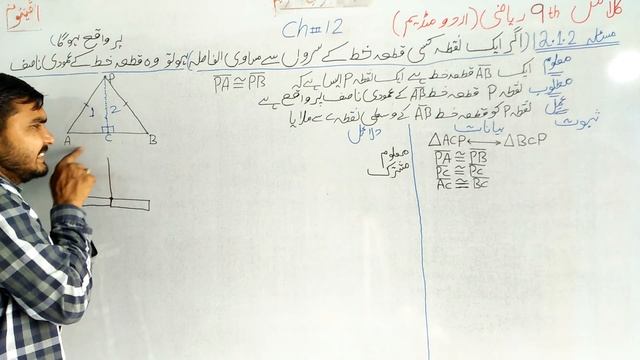 کلاس 9th ریاضی (اردو میڈیم)
Ch # 12
مسئلہ 12.1.2 (اگر ایک نقطہ کسی قطعہ خط کے سروں سے مساوی الفاصلہ ہو تو وہ قطعہ خط کے عمودی ناصف
پر واقع ہوگا)
معلوم ایک AB قطعہ خط ہے ایک نقطہ P ایسا ہے کہ PA ≅ PB
مطلوب نقطہ P قطعہ خط AB کے عمودی ناصف پر واقع ہے
عمل نقطہ P کو قطعہ خط AB کے وسطی نقطہ C سے ملایا
ثبوت
بیانات دلائل
△ACP ↔ △BCP
PA ≅ PB معلوم
PC ≅ PC مشترک
AC ≅ BC
P
1 2
A C B